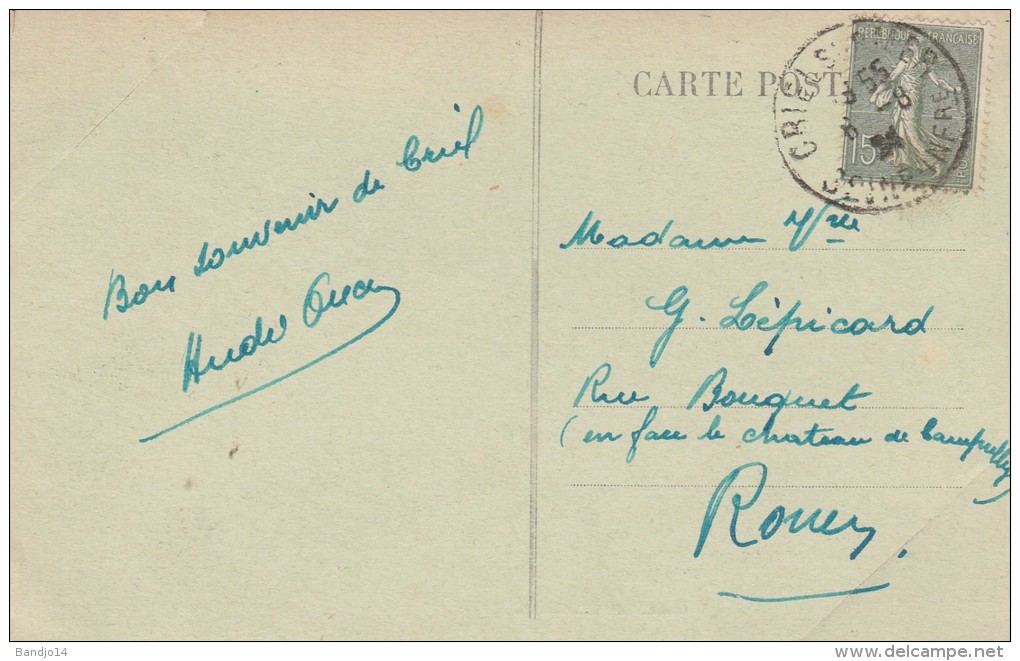 CARTE POST
RÉPUBLIQUE FRANÇAISE
15
CRIEL SUR MER
SEINE INFRE
Bon souvenir de Criel
Madame Vve
G. Lépicard
Rue Bouquet
(en face le chateau de Campulley)
Rouen.
Bandjo14
delcampe.net